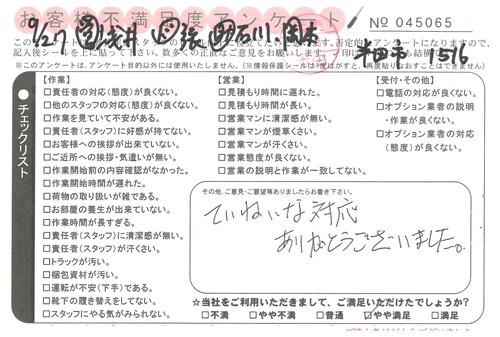 お客様不満足度アンケート
No 045065
9/27
石川、岡本
1516
※このアンケートは、アンケート目的以外には使用いたしません。
チェックリスト
【作業】
□責任者の対応(態度)が良くない。
□他のスタッフの対応(態度)が良くない。
□作業を見ていて不安がある。
□責任者(スタッフ)に好感が持てない。
□お客様への挨拶が出来ていない。
□ご近所への挨拶・気遣いが無い。
□作業開始前の内容確認がなかった。
□作業開始時間が遅れた。
□荷物の取り扱いが雑である。
□お部屋の養生が出来ていない。
□作業時間が長すぎる。
□責任者(スタッフ)に清潔感が無い。
□責任者(スタッフ)が汗くさい。
□トラックが汚い。
□梱包資材が汚い。
□運転が不安(下手)である。
□靴下の履き替えをしてない。
□スタッフにやる気がみられない。
【営業】
□見積もり時間に遅れた。
□見積もり時間が長い。
□営業マンに清潔感が無い。
□営業マンが煙草くさい。
□営業マンが汗くさい。
□営業態度が良くない。
□営業の説明と作業が一致してない。
【受付・その他】
□電話の対応が良くない。
□オプション業者の説明・作業が良くない。
□オプション業者の対応(態度)が良くない。
その他、ご意見・ご要望等ありましたらお書き下さい。
ていねいな対応
ありがとうございました。
☆当社をご利用いただきまして、ご満足いただけたでしょうか?
□不満 □やや不満 □普通 □やや満足 □満足